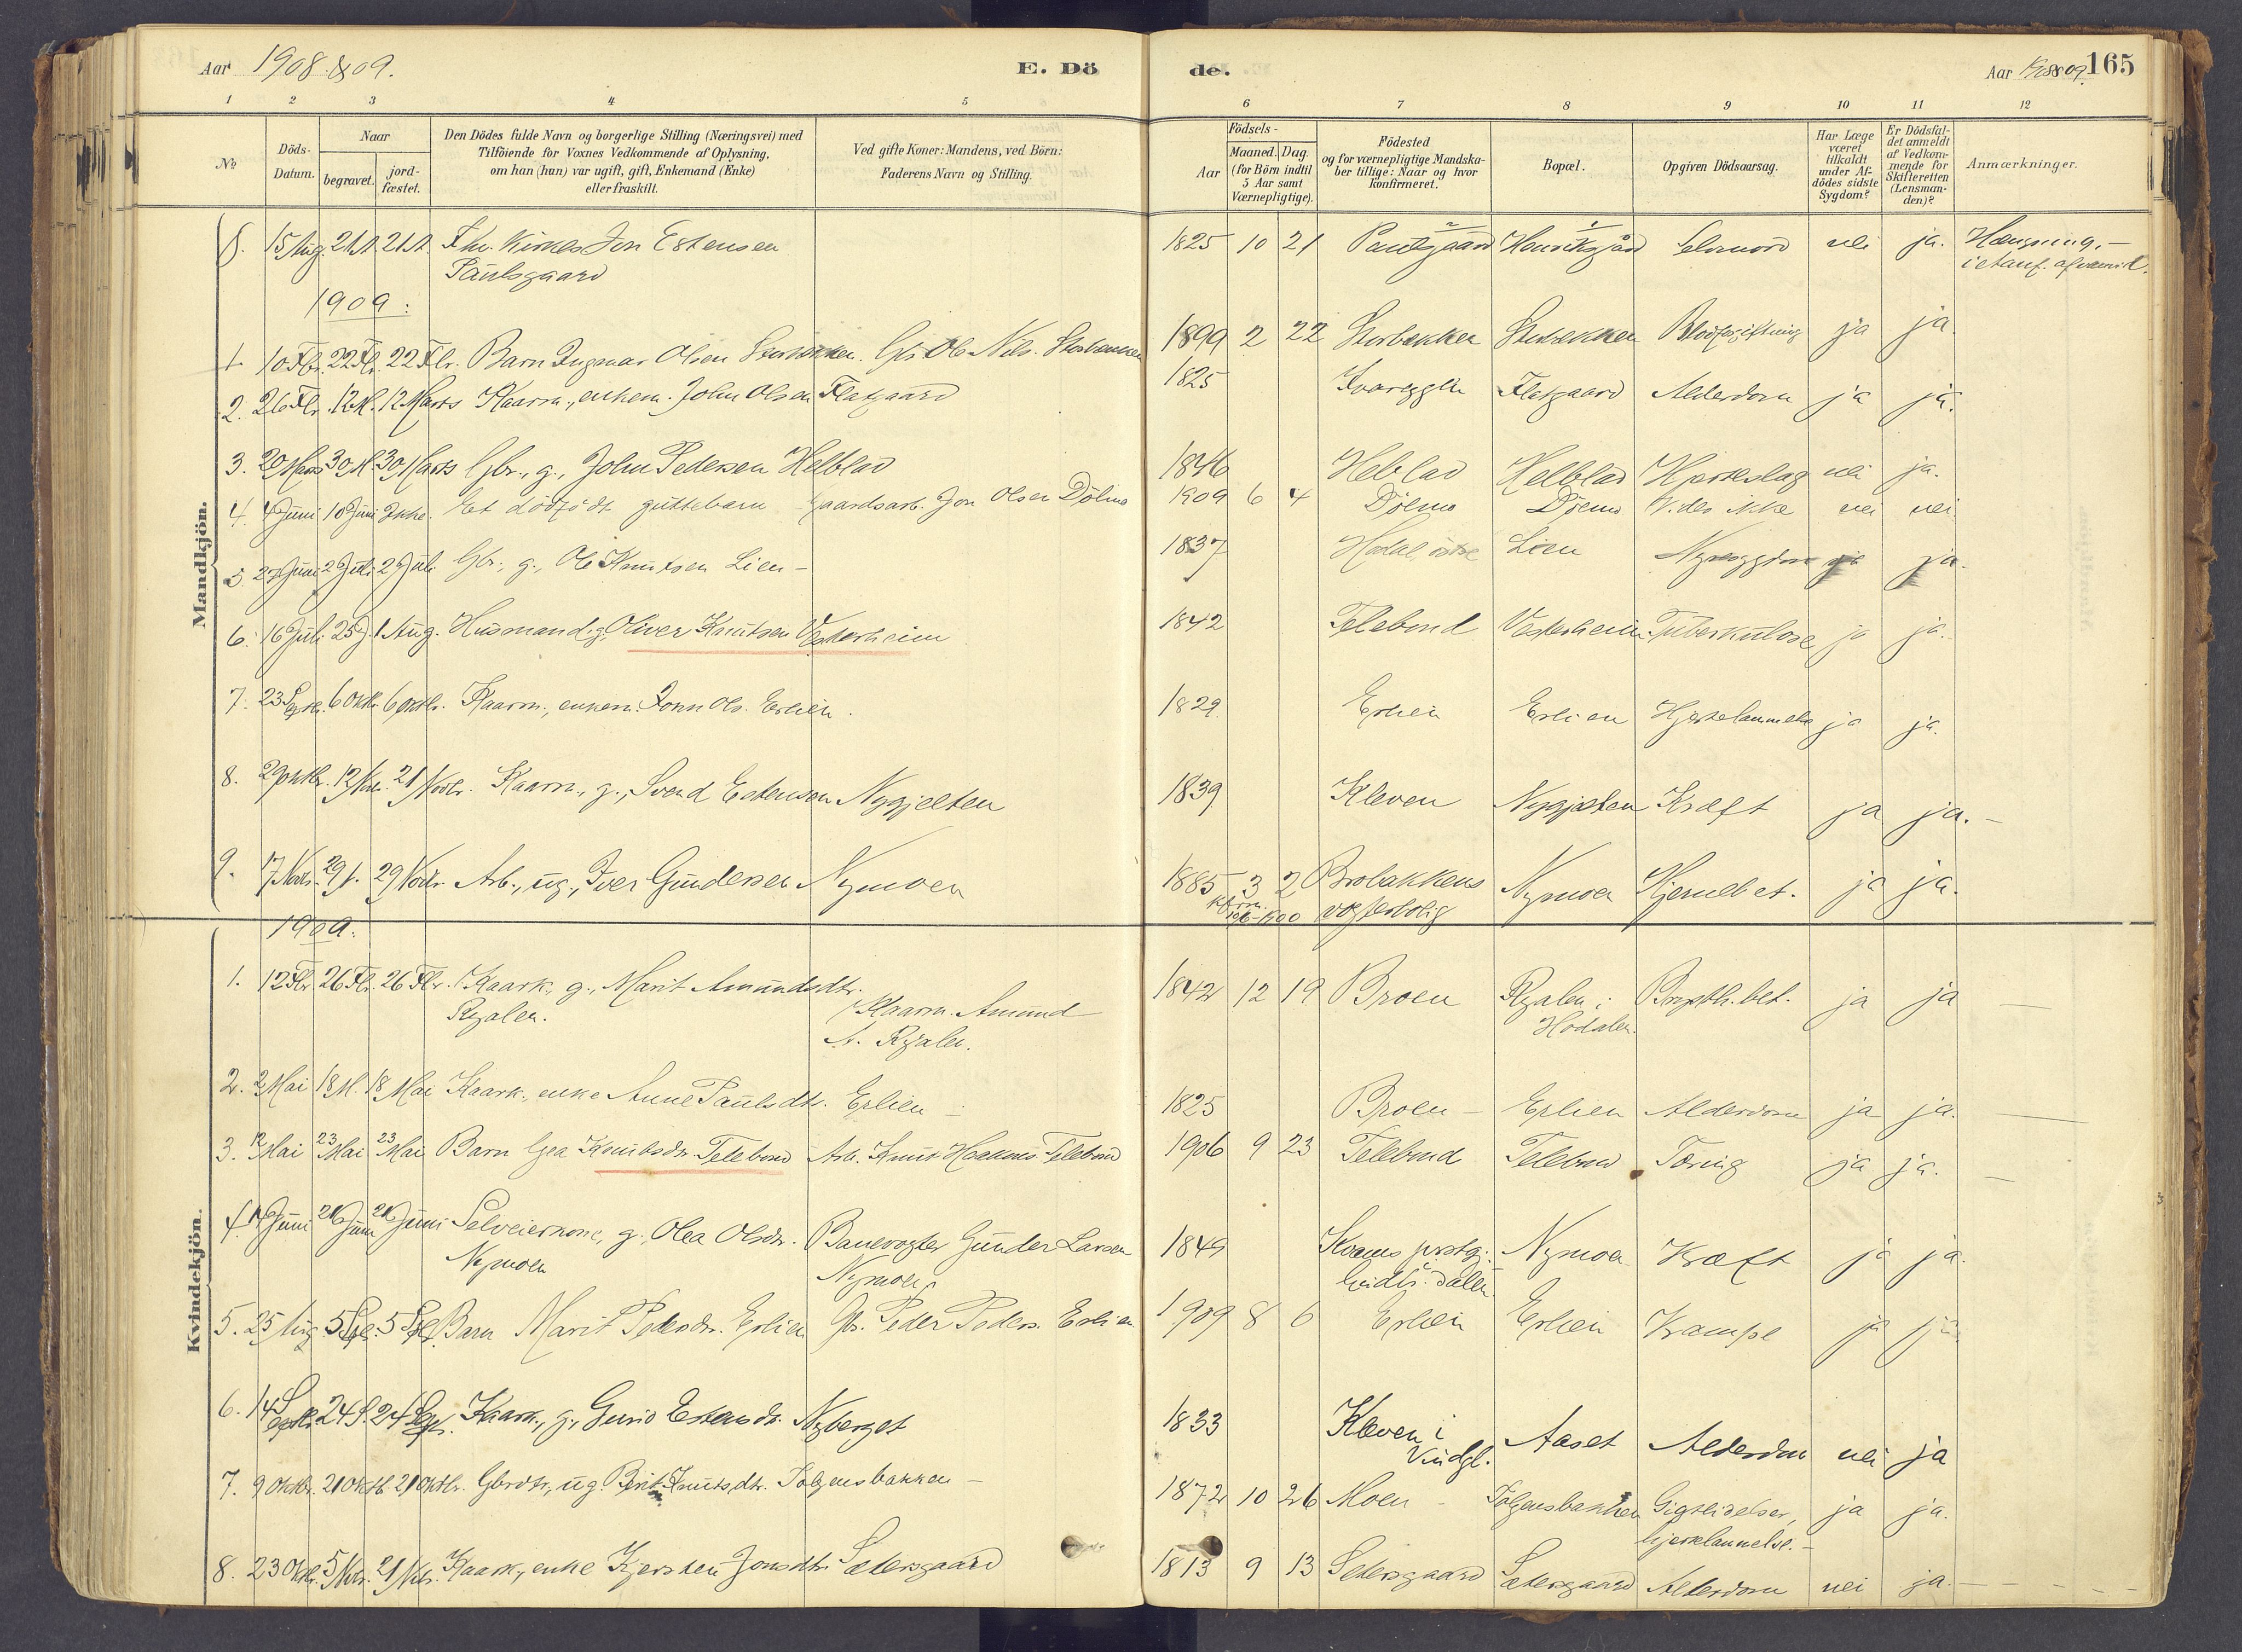 Aar 1908 & 09.
E. Dö
de.
Aar 1908 & 09. 165
1 2 3 4 5 6 7 8 9 10 11 12
No
Döds-Datum.
Naar
begravet.
jord-fæstet.
Den Dödes fulde Navn og borgerlige Stilling (Næringsvei) med
Tilföiende for Voxnes Vedkommende af Oplysning,
om han (hun) var ugift, gift, Enkemand (Enke)
eller fraskilt.
Ved gifte Koner: Mandens, ved Börn:
Faderens Navn og Stilling.
Födsels-
Aar
Maaned. Dag.
(for Börn indtil
5 Aar samt
Værnepligtige).
Födested
og for værnepligtige Mandska-
ber tillige: Naar og hvor
konfirmeret.
Bopæl.
Opgiven Dödsaarsag.
Har Læge
været
tilkaldt
under Af-
dödes sidste
Sygdom?
Er Dödsfal-
det anmeldt
af Vedkom-
mende for
Skifteretten
(Lensman-
den)?
Anmærkninger.
Mandkjön.
8. 15 Aug. 21 A. 21 A. Jon Estensen 1825 10 21 Paulsgaard Henriksgård Selvmord nei ja. Hængning.-
Paulsgaard i et anf. af
1909:
1. 10 Fbr. 22 Fbr. 22 Fbr. Barn Ingmar Olsen Storbækken. Gbr. Ole Nils. Storbækken 1899 2 22 Storbekken Storbekken Blodforgiftning ja ja.
2. 26 Fbr. 12 M. 12 Marts Kaarm., enkem. John Olsen Flatgaard 1825 Flatgaard Alderdom ja ja.
3. 20 Marts 30 M. 30 Marts Gbr., g., John Pedersen Helblad 1846 Heblad Helblad Hjerteslag nei ja.
4. 4 Juni 10 Juni Ikke. Et dödfödt guttebarn Gaardsarb. Jon Olsen Dölmo 1909 6 4 Dölmo Dölmo Vides ikke nei nei
5. 27 Juni 2 Juli 2 Juli Gbr., g., Ole Knutsen Lien - 1837 Hodal, östre Lien ja ja.
6. 16 Juli 25 J. 1 Aug. Husmand, g. Oliver Knutsen Vesterheim 1842 Telebond Vesterheim Tuberkulose ja ja.
7. 23 Septbr. 6 Oktb. 6 Oktbr. Kaarm., enkem. John Ols. Erlien. 1829. Erlien Erlien Hjertelammelse ja ja.
8. 29 Oktbr. 12 Nov. 21 Novbr. Kaarm., g., Svend Estensen Nygjelten 1839 Kleven Nygjelten Kræft ja ja.-
9. 17 Novbr. 29 N. 29 Novbr. Arb., ug., Iver Gundersen Nymoen 1885 3 2 Brobakkens Nymoen Hjernebet. ja ja.
1900 vogterbolig
Kvindekjön.
1909.
1. 12 Fbr. 26 Fbr. 26 Fbr. Kaark., g., Marit Amundsdtr. 1842 12 19 Broen Ryalen i Brysth.bet. ja ja
Ryalen. Kaarm. Amund Hodalen.
A. Ryalen.
2. 2 Mai 18 M. 18 Mai Kaark., enke Anne Paulsdtr. Erlien - 1825 Broen - Erlien Alderdom ja ja.
3. 12 Mai 23 Mai 23 Mai Barn Gea Knutsdtr. Telebond Arb. Knut Haakens. Telebond 1906 9 23 Telebond Telebond Tæring ja ja.
4. 14 Juni 21 Juni 21 Juni Selveierkone, g., Olea Olsdtr. Banevogter Gunder Larsen 1849 Kvams prstgj. Nymoen Kræft ja ja.
Nymoen Nymoen Gudbr.dalen
5. 25 Aug. 5 Spt. 5 Spt. Barn Marit Pedersdtr. Erlien Gbr. Peder Peders. Erlien 1909 8 6 Erlien Erlien Krampe ja ja
6. 14 Septbr. 24 S. 24 Sept. Kaark., g., Guri Estensdtr. Nyberget 1833 Kleven i Aaset Alderdom nei ja
Vindgl.
7. 9 Oktbr. 21 Oktb. 21 Oktbr. Gbrdtr., ug. Berit Knutsdtr. Tolgensbakken - 1872 10 26 Moen - Tolgensbakken Gigtlidelser, ja ja.
hjertelammelse.-
8. 23 Oktbr. 5 Novbr. 21 Nvbr. Kaark., enke Kjersten Jonsdtr. Sætersgaard 1813 9 13 Setersgaard Sætersgaard Alderdom nei ja.